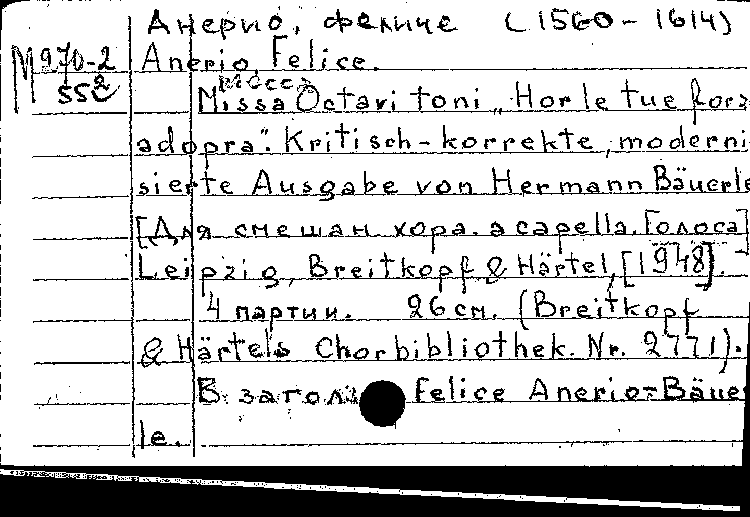 Анерио, Феличе (1560-1614)
М 970-2 Anerio, Felice.
552
Месса
Missa Octavi toni „Hor le tue forz
adopra". Kritisch-korrekte, moderni
sierte Ausgabe von Hermann Bäuerle
[Для смешан. хора. a capella. Голоса]
Leipzig, Breitkopf & Härtel, [1948].
4 партии. 26 см. (Breitkopf
& Härtels Chorbibliothek. Nr. 2771).
В загол Felice Anerio-Bäue
le.